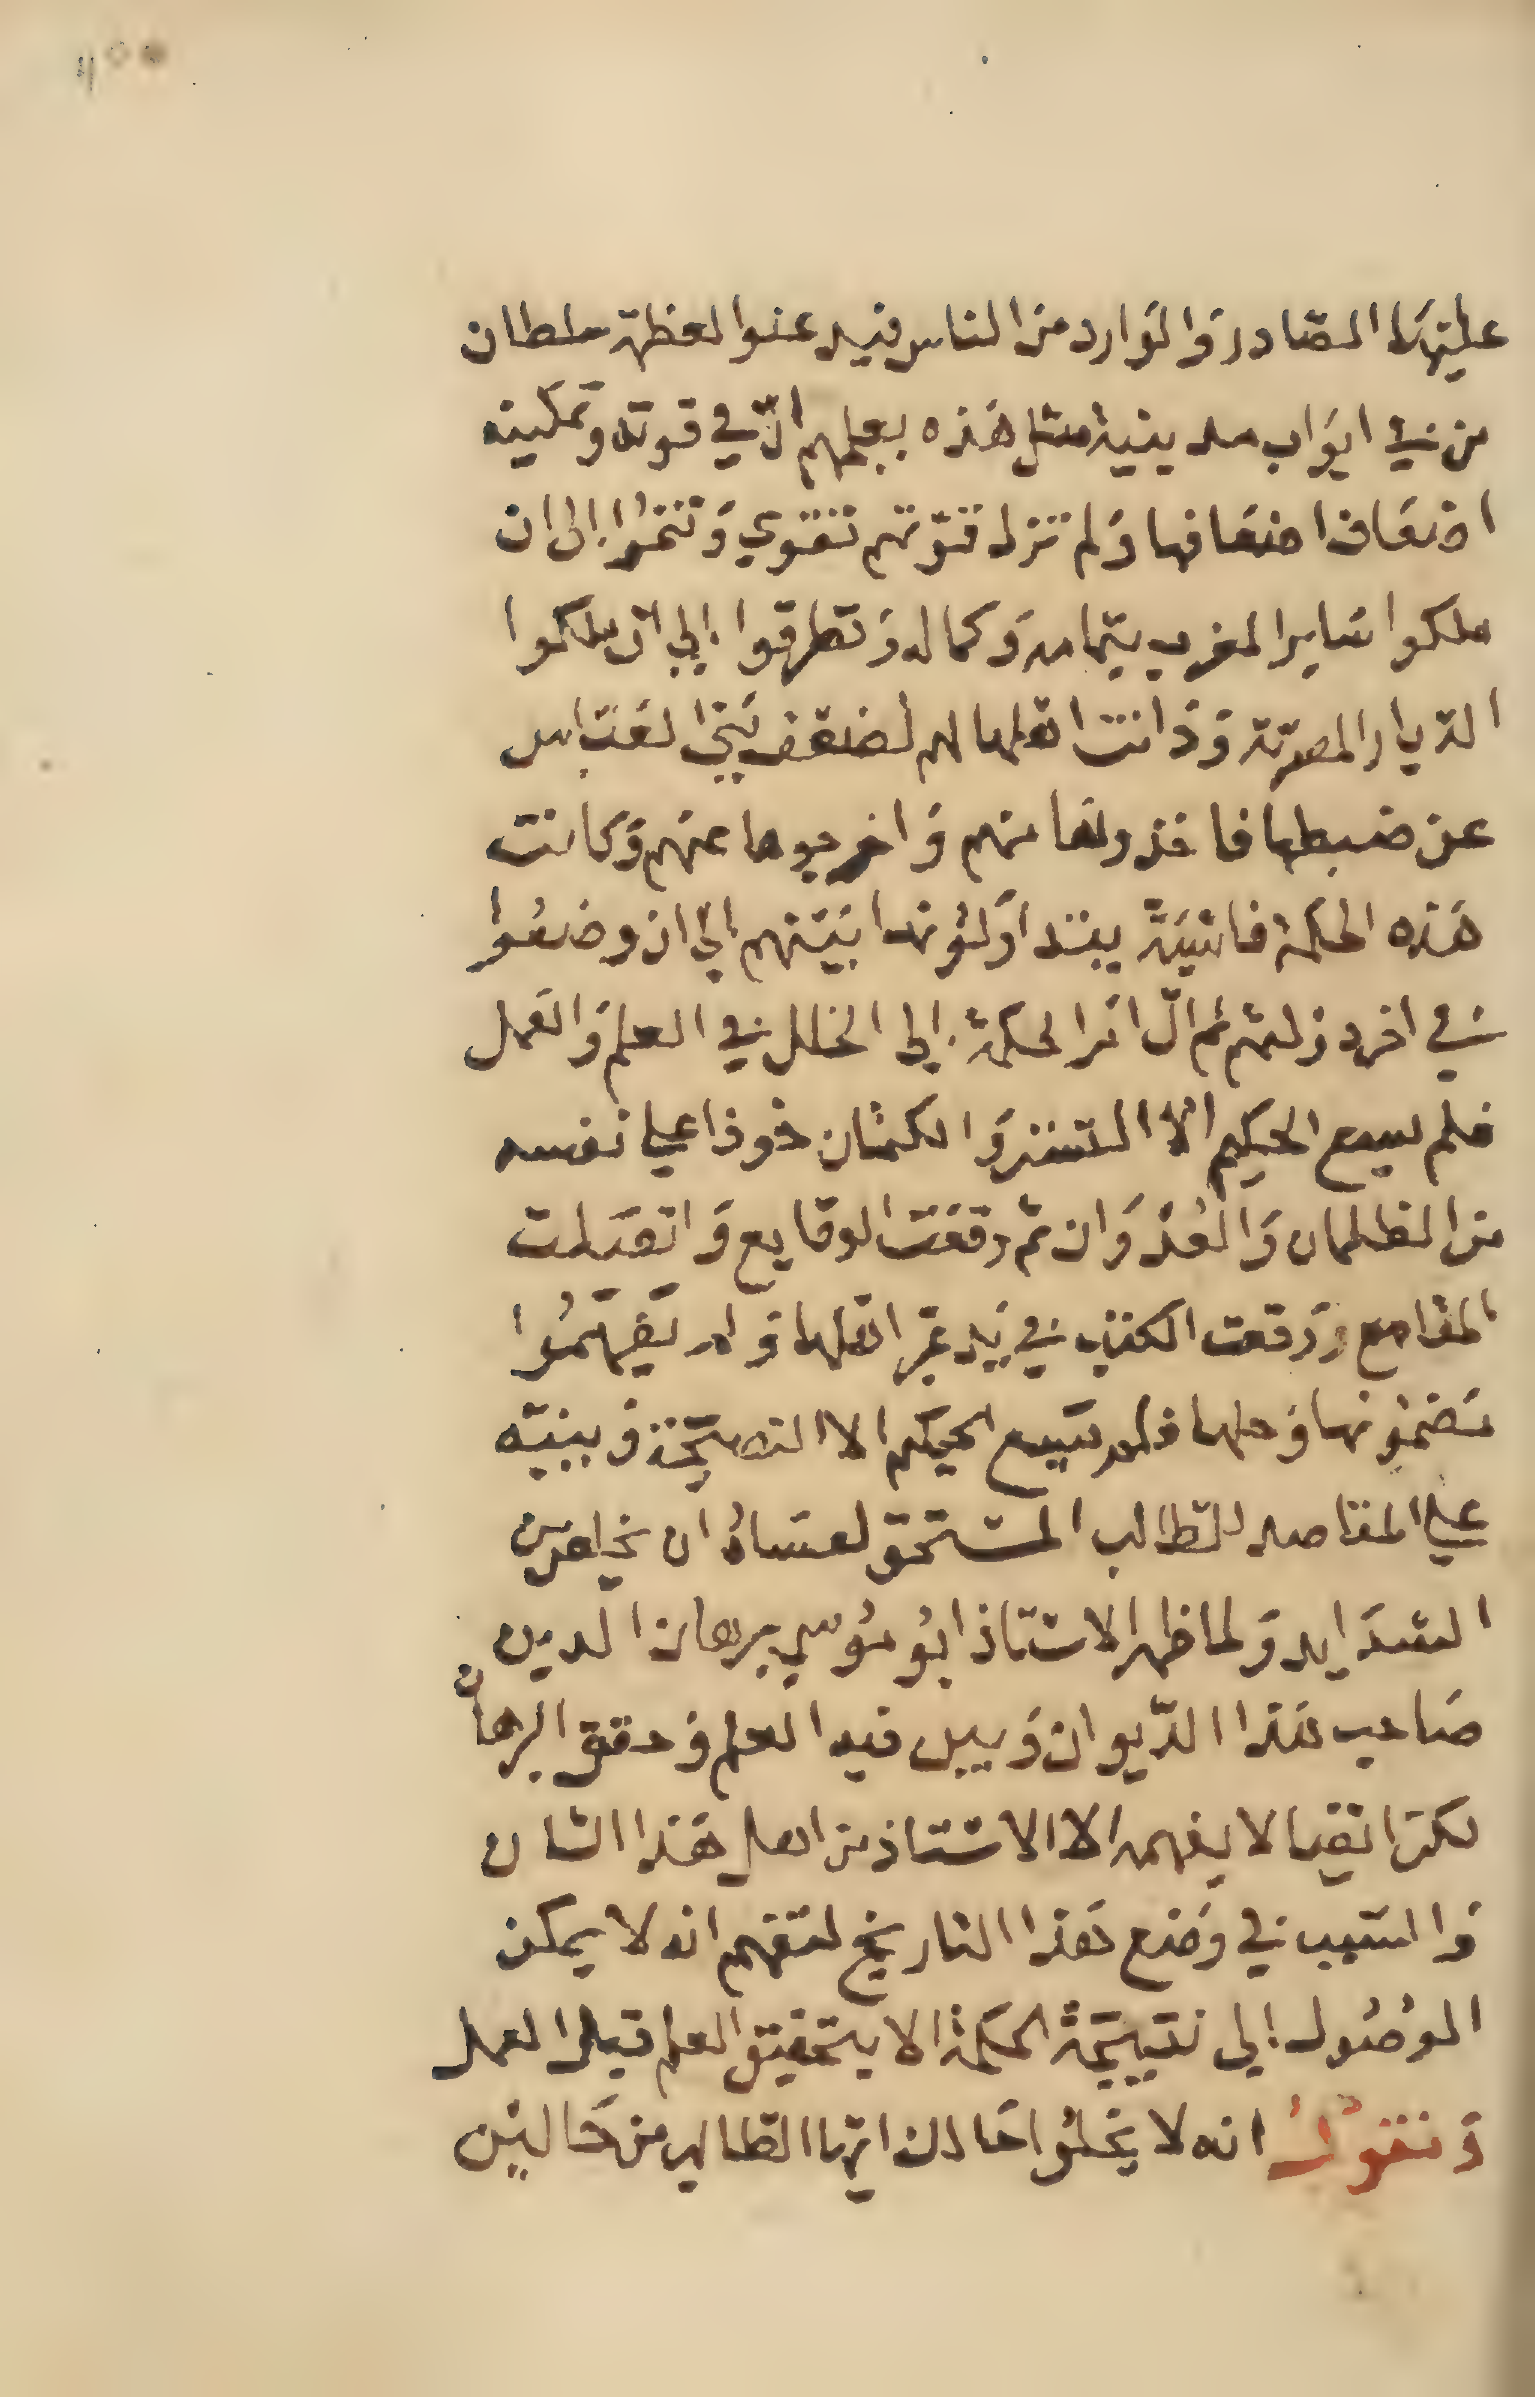 عليها الصادر والوارد من الناس فيدعنوا لعظمة سلطان
من في ابواب مدينية مثل هذه بعلمهم ان في قوته وتمكينه
اضعاف اضعافها وَلم تزل قوّتهم تتقوي وَتنموا الى ان
ملكوا سَاير المغرب بتمامه وَكماله وَتطرقوا إلي ان ملكوا
الديار المصريّة وَدَانت اهلها لهم لضعف بَني العَبّاس
عن ضبطها فاخذوهَا منهم وَاخرجوها عنهم وَكانت
هَذه الحكمة فاشيَة يتداوَلوُنها بَيْنهم إلي ان وضعُوا
في اخر دولتهم ثم الّ امَر الحكمة إلى الخلل في العلم وَالعَمل
فلم يسع الحكيم الا التستر وَالكتمان خوفا علي نفسه
من الظلمان وَالعُدْوَان ثم وقعَت الوقايع وَاتصَلت
المقامع وَوقعت الكتب في يَد غير اهلها وَلم يَفهمُوا
مَضمُونها وَحلها فلم يَسع الحكيم الا النصيحَة وَبينيّه
علي المقاصد للطالب المستحق لعسَاهُ ان يخلص من
الشدَايد وَلما ظهر الاستاذ ابُو موُسي برهان الدين
صَاحب هَذا الدّيوان وَبين فيه العلم وَحقق البرهان
لكن ايضا لا يفهمه الا الاستاذ من اهل هَذا الشان
وَالسَبب في وَضع هَذا التاريخ لتفهم انه لا يمكن
الوُصُول إلي نتيجَة الحكمة الا بتحقيق العلم قبل العمل
وَنقوُلُ انه لا يخلوُا حَالك ايها الطالب من حَالين